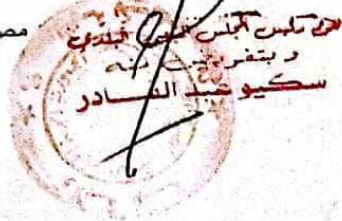 عن رئيس المجلس الشعبي البلدي
و بتفويض منه
سكيو عبد القادر